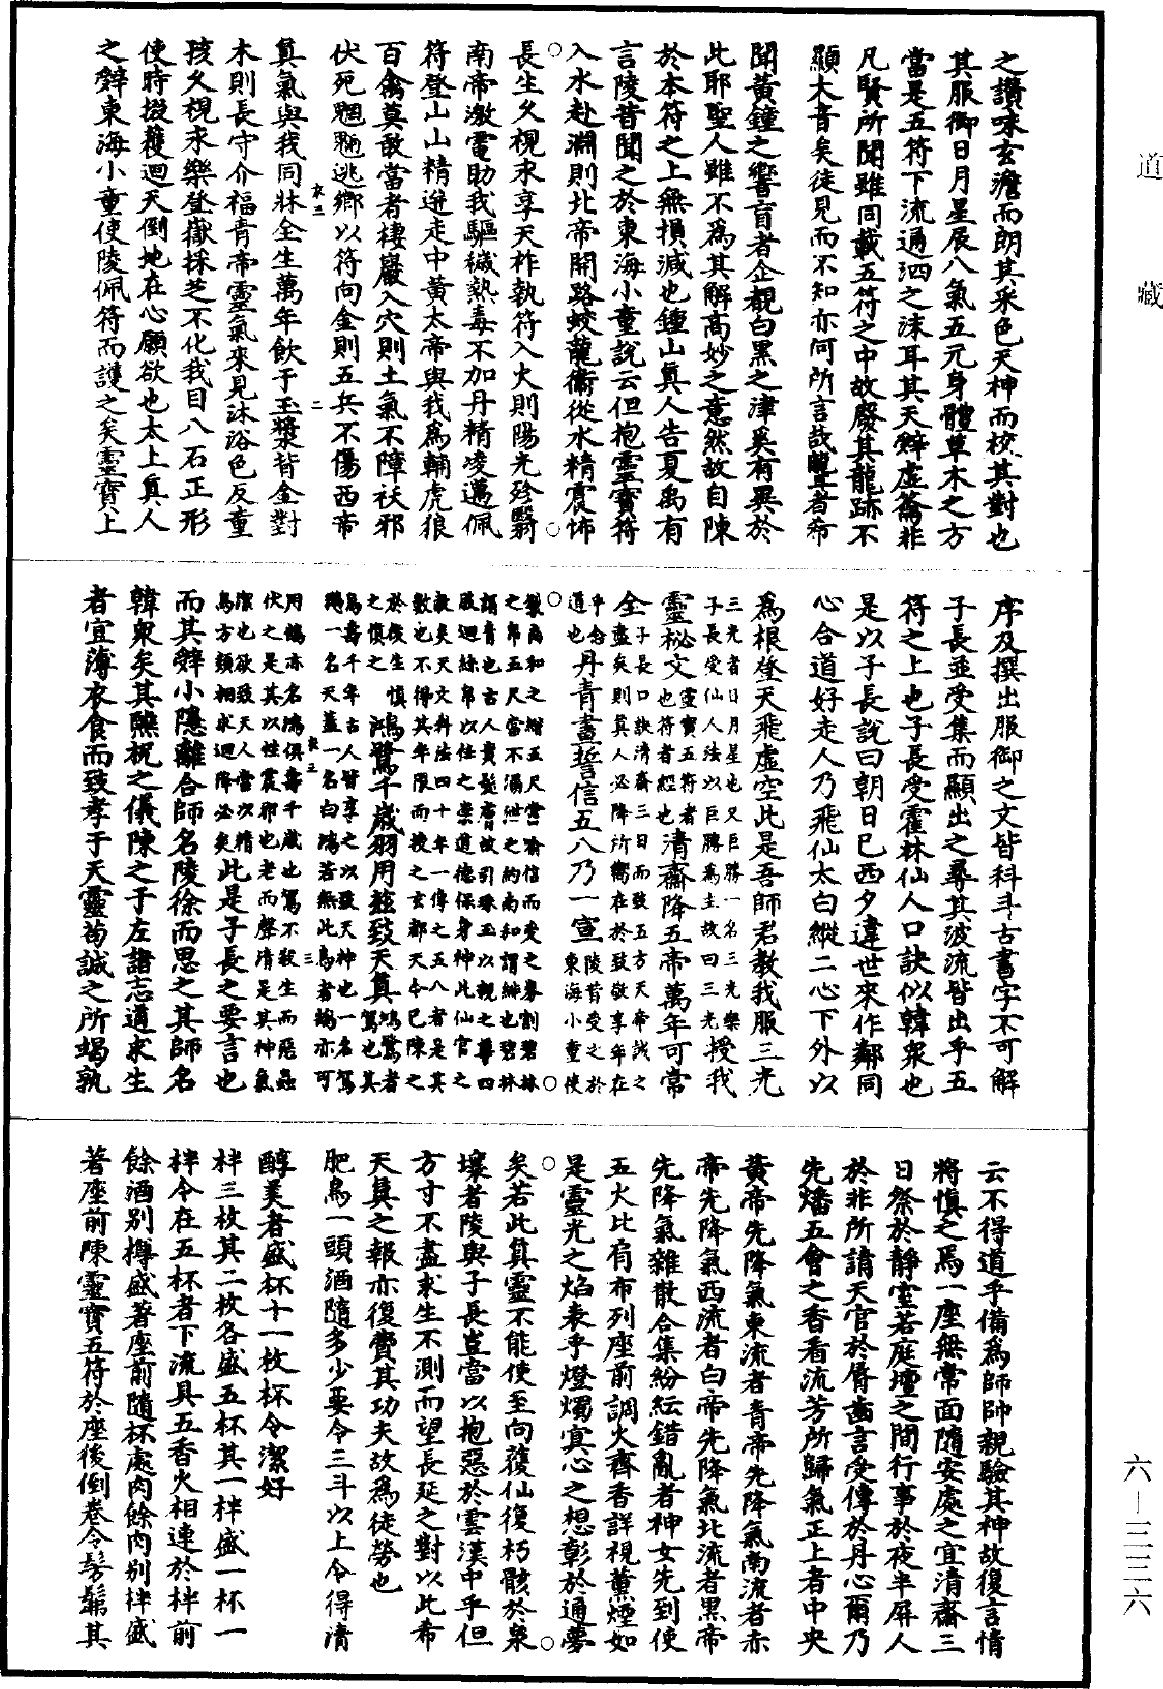 之讚味玄澹而朗其采色天神而校其對也
其服御日月星辰八氣五元身體草木之方
當是五符下流通泗之沫耳其天辭虛籥非
凡賢所聞雖同載五符之中故廢其龍跡不
顯大音矣徒見而不知亦何所言哉聾者希
聞黃鍾之響盲者企覩白黑之津奚有異於
此耶聖人雖不為其解高妙之意然故自陳
於本符之上無損減也鍾山真人告夏禹有
言陵昔聞之於東海小童說云但抱靈寶符
入水赴淵則北帝開路蛟龍衞從水精震怖
長生久視永享天祚執符入火則陽光殄翳
南帝激電助我驅穢熱毒不加丹精凌邁佩
符登山山精逆走中黃太帝與我為輔虎狼
百禽莫敢當者棲巖入穴則土氣不障祅邪
伏死魍魎逃鄉以符向金則五兵不傷西帝
衣三 二
真氣與我同牀全生萬年飲于玉漿背金對
木則長守介福青帝靈氣來見沐浴色反童
孩久視永樂登嶽採芝不化我目八石正形
使時掇穫迴天倒地在心願欲也太上真人
之辭東海小童使陵佩符而護之矣靈寶上
序及撰出服御之文皆科斗古書字不可解
子長並受集而顯出之尋其波流皆出乎五
符之上也子長受霍林仙人口訣似韓衆也
是以子長說曰朝日巳西夕違世來作鄰同
心合道好走人乃飛仙太白縱二心下外以
為根登天飛虛空此是吾師君教我服三光
三光者日月星也又巨勝一名三光樂
子長受仙人法以巨勝為主故曰三光授我
靈秘文靈寶五符者
也符者經也清齋降五帝萬年可常
全子長口訣清齋三日而致五方天帝誠之
盡矣則真人必降所嚮在於致敬享年在
乎念
道也丹青畫誓信五八乃一宣陵昔受之於
東海小童使
製禹和之繒五尺當喻信而受之券割碧林
之帛五尺當不漏泄之約南和謂緋也碧林
謂青也古人貴髮膚故引珠玉以親之尊四
服迴絲帛以佳之崇道德保身神此仙官之
數矣天文科法四十年一傳之五八者是其
數也不得其年限而授之玄都天令已陳之
於後生慎
之慎之鴻鷺千歲羽用玆致天真鴻鷺者
鷺也其
鳥壽千年古人皆享之以致天神也一名鷺
鵜一名天蓋一名白鴻若無此鳥者鵠亦可
衣三 三
用鵠亦名鴻俱壽千歲也鷺不殺生而惡蟲
伏之是其以性震邪也老而聲清是其神氣
潔也欲致天人當以精
為方類相求迴降必矣此是子長之要言也
而其辭小隱離合師名陵徐而思之其師名
韓衆矣其醮祝之儀陳之于左諸志道求生
者宜薄衣食而致孝于天靈苟誠之所竭孰
云不得道乎備為師師親驗其神故復言情
將慎之焉一座無常面隨安處之宜清齋三
日祭於靜室若庭壇之間行事於夜半屏人
於非所請天官於脣齒言受傳於丹心爾乃
先燔五會之香看流芳所歸氣正上者中央
黃帝先降氣東流者青帝先降氣南流者赤
帝先降氣西流者白帝先降氣北流者黑帝
先降氣雜散合集紛紜錯亂者神女先到使
五火比肩布列座前調火齊香詳視薰煙如
是靈光之焰表乎燈燭冥心之想彰於通夢
矣若此真靈不能使至向覆仙復朽骸於泉
壤者陵與子長豈當以抱惡於雲漢中乎但
方寸不盡求生不測而望長延之對以此希
天真之報亦復費其功夫故為徒勞也
肥鳥一頭酒隨多少要令三斗以上令得清
醇美者盛杯十一枚杯令潔好
柈三枚其二枚各盛五杯其一柈盛一杯一
柈令在五杯者下流具五香火相連於柈前
餘酒別樽盛著座前隨杯處肉餘肉別柈盛
著座前陳靈寶五符於座後倒卷令髣髴其
道藏
六—三三六